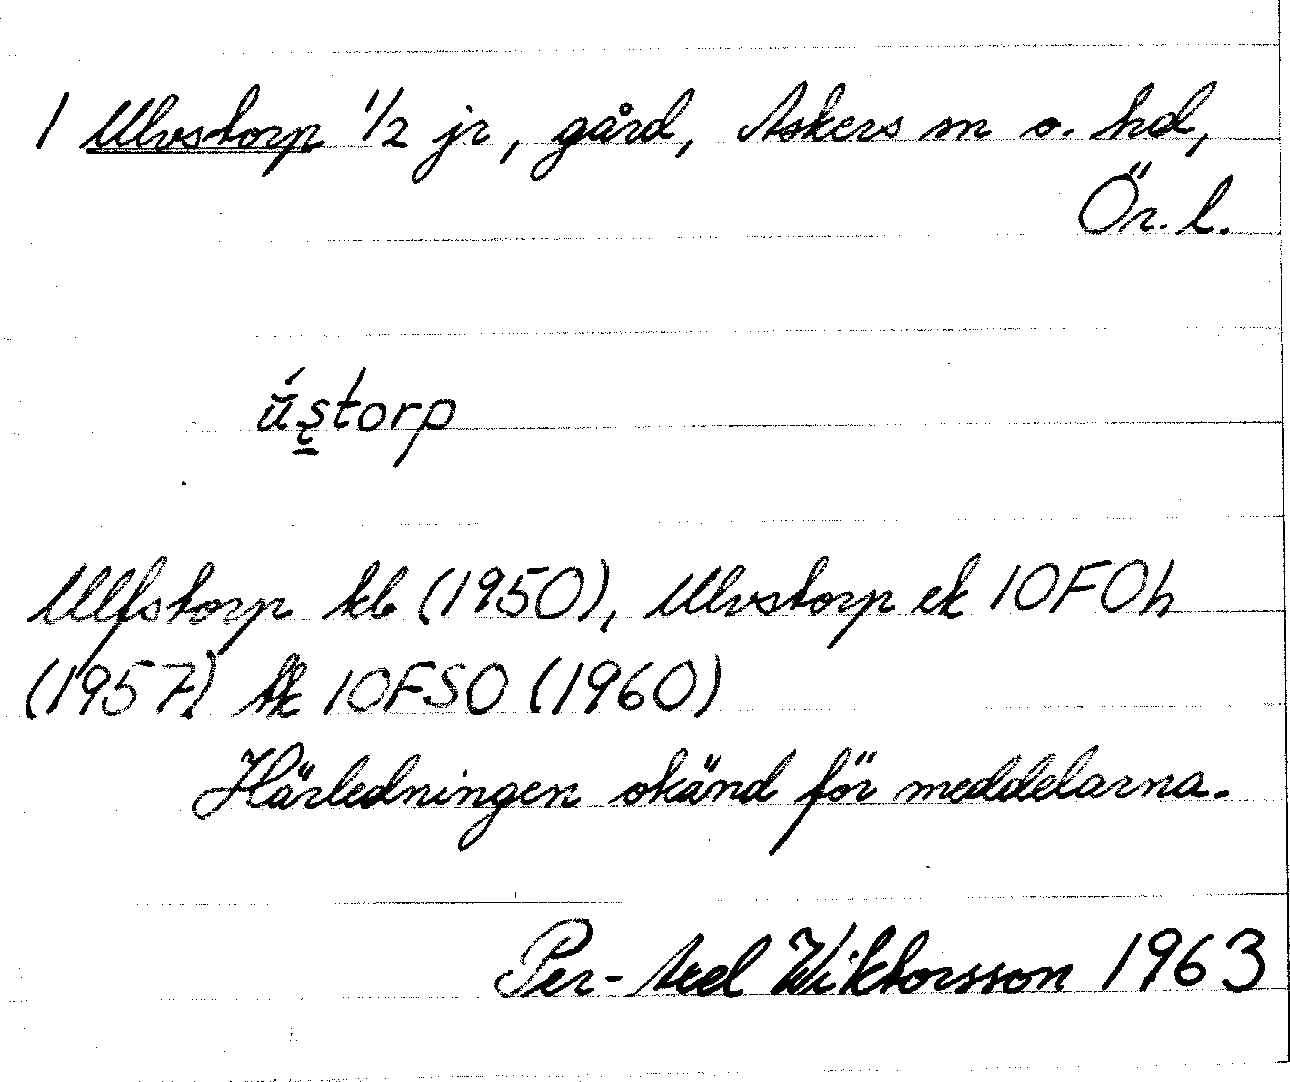 1 Ulvstorp 1/2 jr, gård, Askers sn o. hd,
Ör. l.
ústorp
Ulfstorp kb (1950), Ulvstorp ek 10F0h
(1957) tk 10FSO (1960)
Härledningen okänd för meddelarna.
Per-Axel Wiktorsson 1963